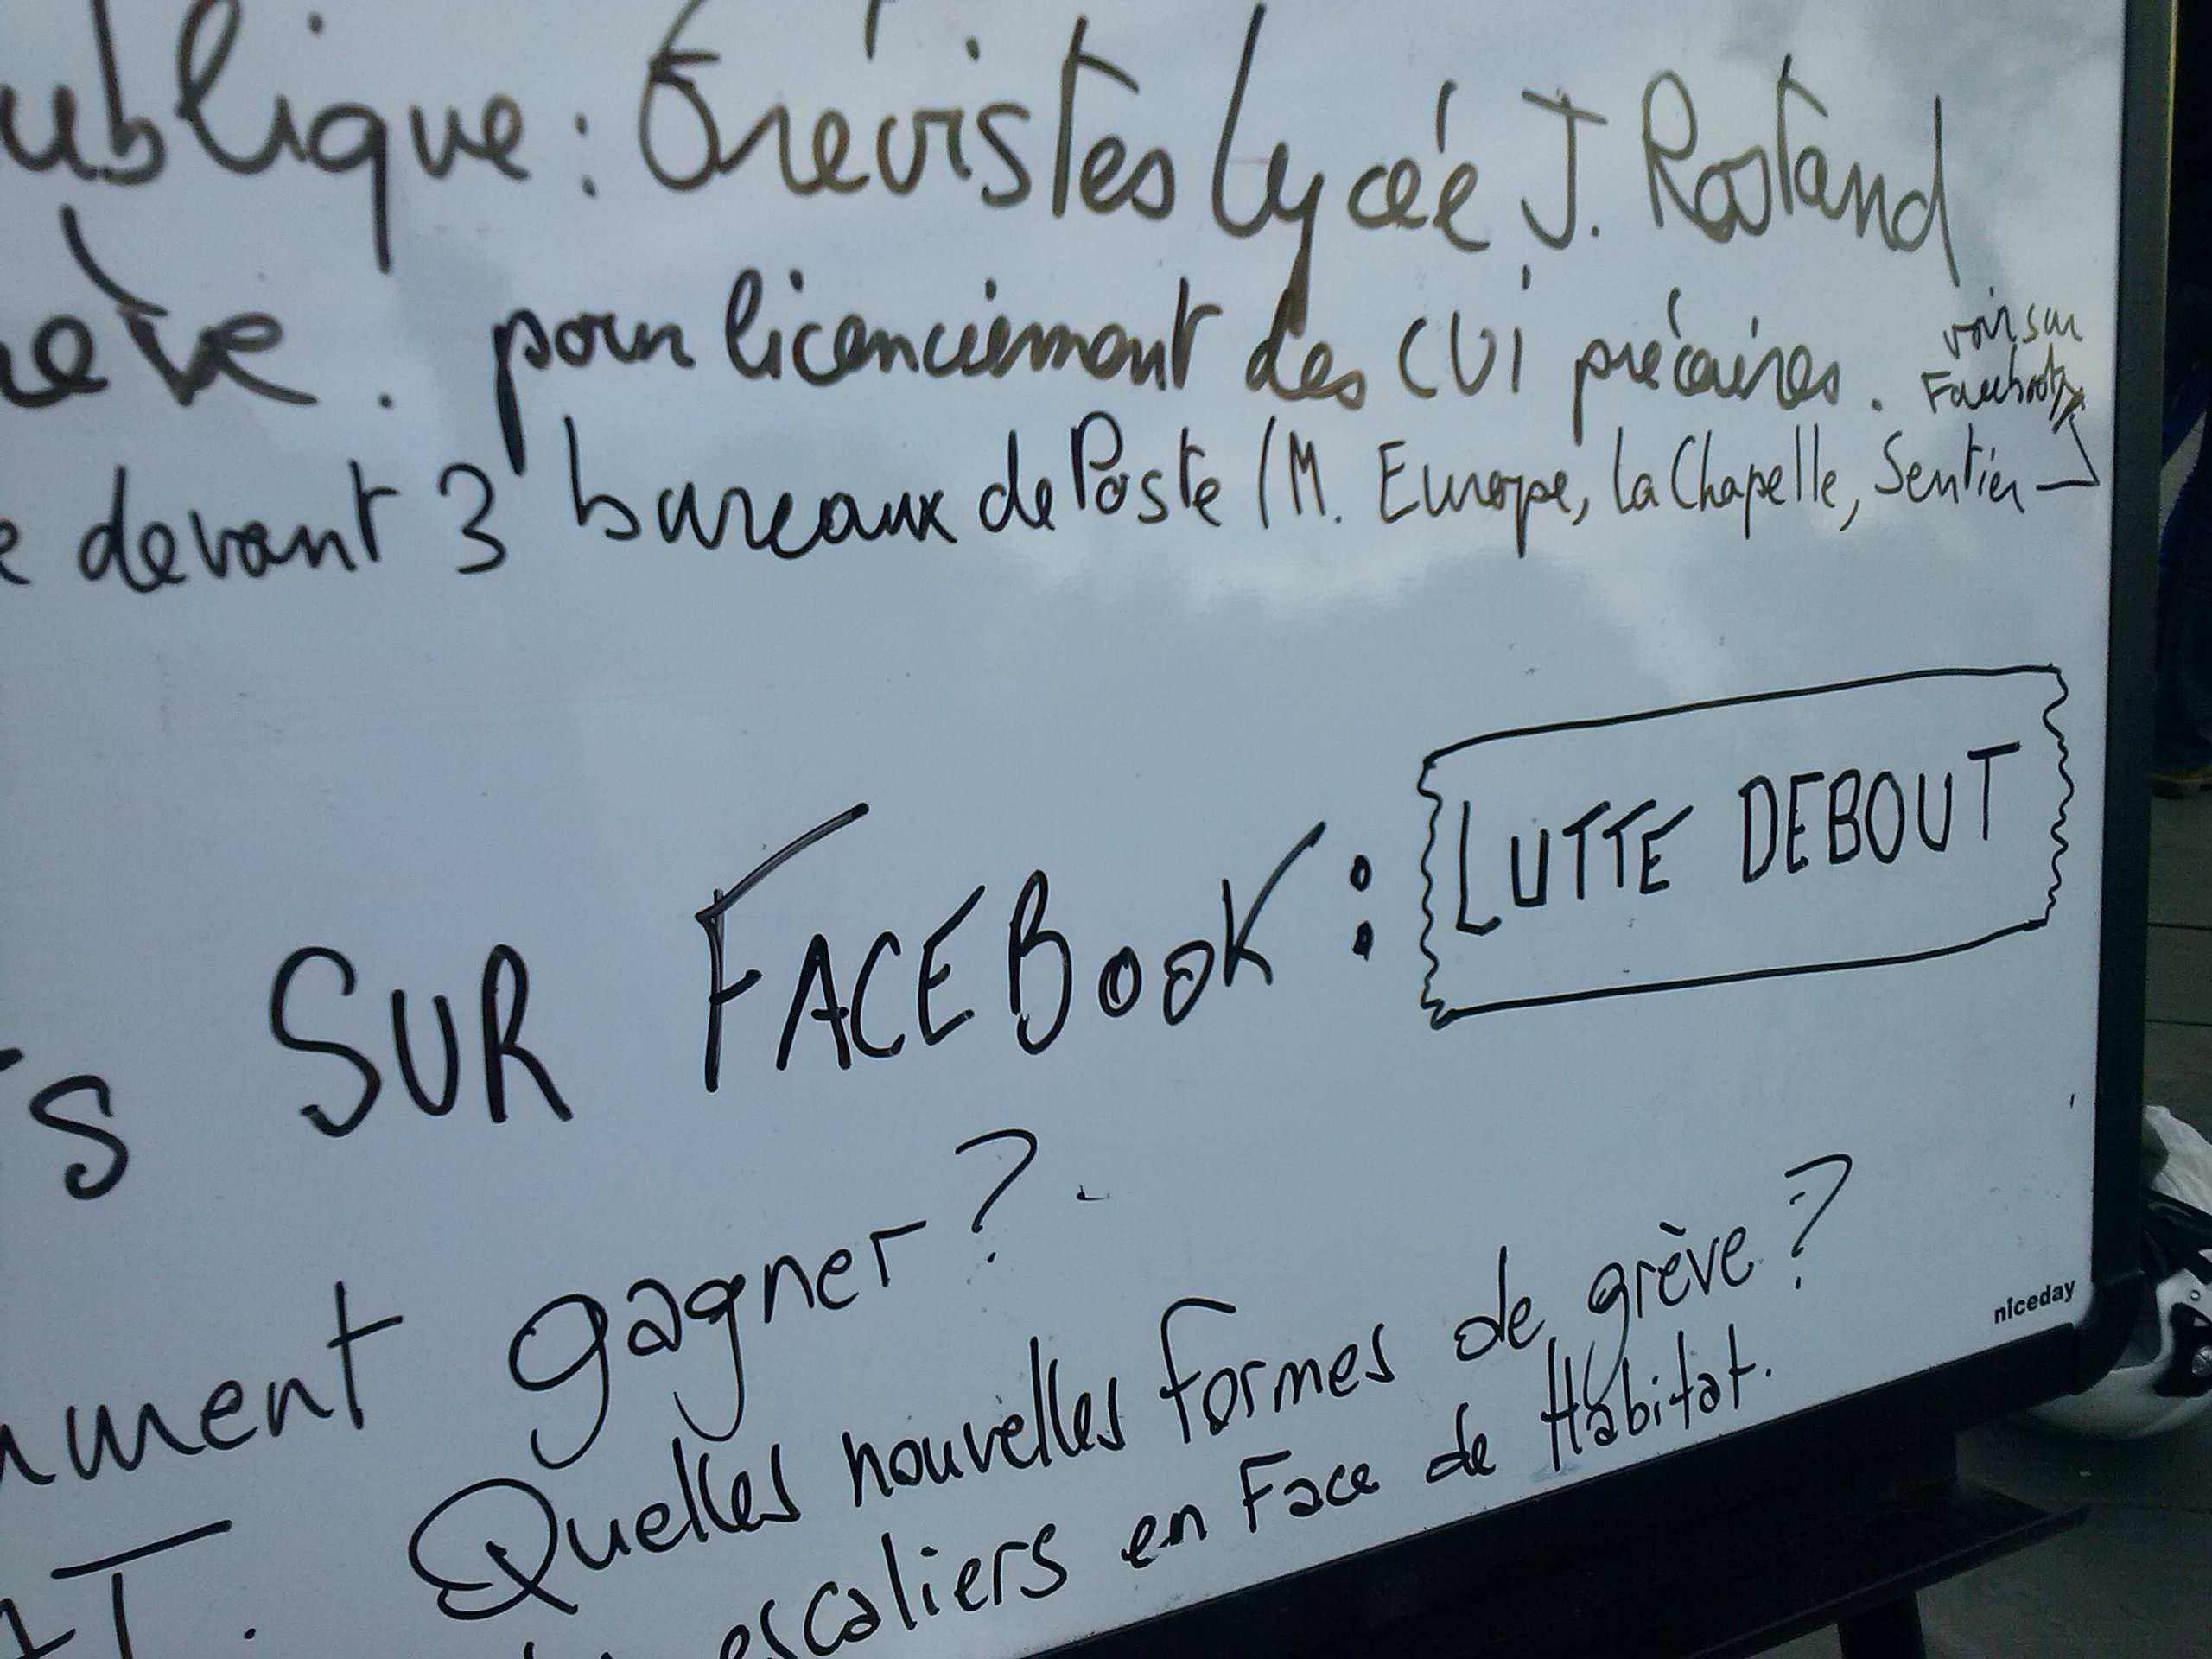 ublique : Grévistes Lycée J. Rostand
ève. pour licenciement des CUI précaires.
voir sur
Facebook
e devant 3 bureaux de Poste (M. Europe, La Chapelle, Sentier
S SUR FACEBOOK : LUTTE DEBOUT
mment gagner ?
T. Quelles nouvelles formes de grève ?
escaliers en Face de Habitat.
niceday